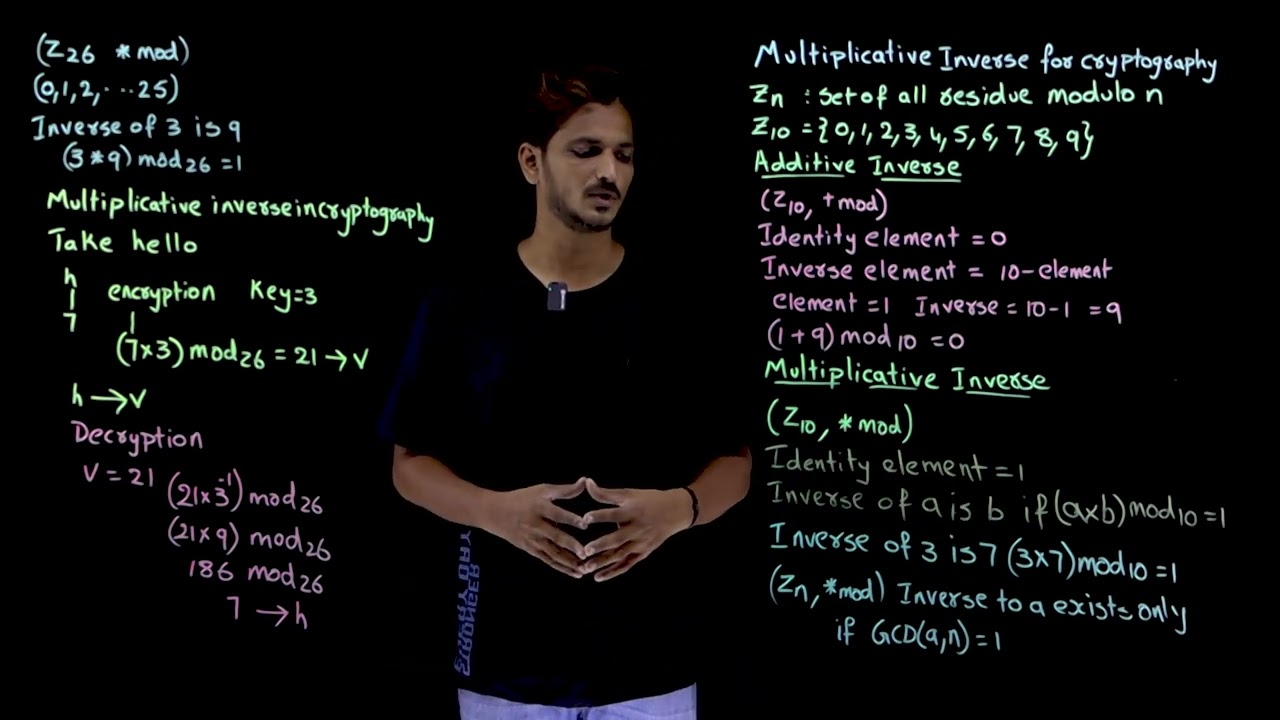 (Z26 * mod)
(0,1,2,...25)
Inverse of 3 is 9
(3*9) mod 26 = 1
Multiplicative inverse in cryptography
Take hello
h
|
7
encryption Key=3
|
(7x3) mod 26 = 21 → V
h → V
Decryption
V = 21 (21x3⁻¹) mod 26
(21x9) mod 26
186 mod 26
7 → h
Multiplicative Inverse for cryptography
Zn : set of all residue modulo n
Z10 = {0, 1, 2, 3, 4, 5, 6, 7, 8, 9}
Additive Inverse
(Z10, +mod)
Identity element = 0
Inverse element = 10-element
element = 1 Inverse = 10-1 = 9
(1+9) mod 10 = 0
Multiplicative Inverse
(Z10, *mod)
Identity element = 1
Inverse of a is b if (axb) mod 10 = 1
Inverse of 3 is 7 (3x7) mod 10 = 1
(Zn, *mod) Inverse to a exists only
if GCD(a,n) = 1